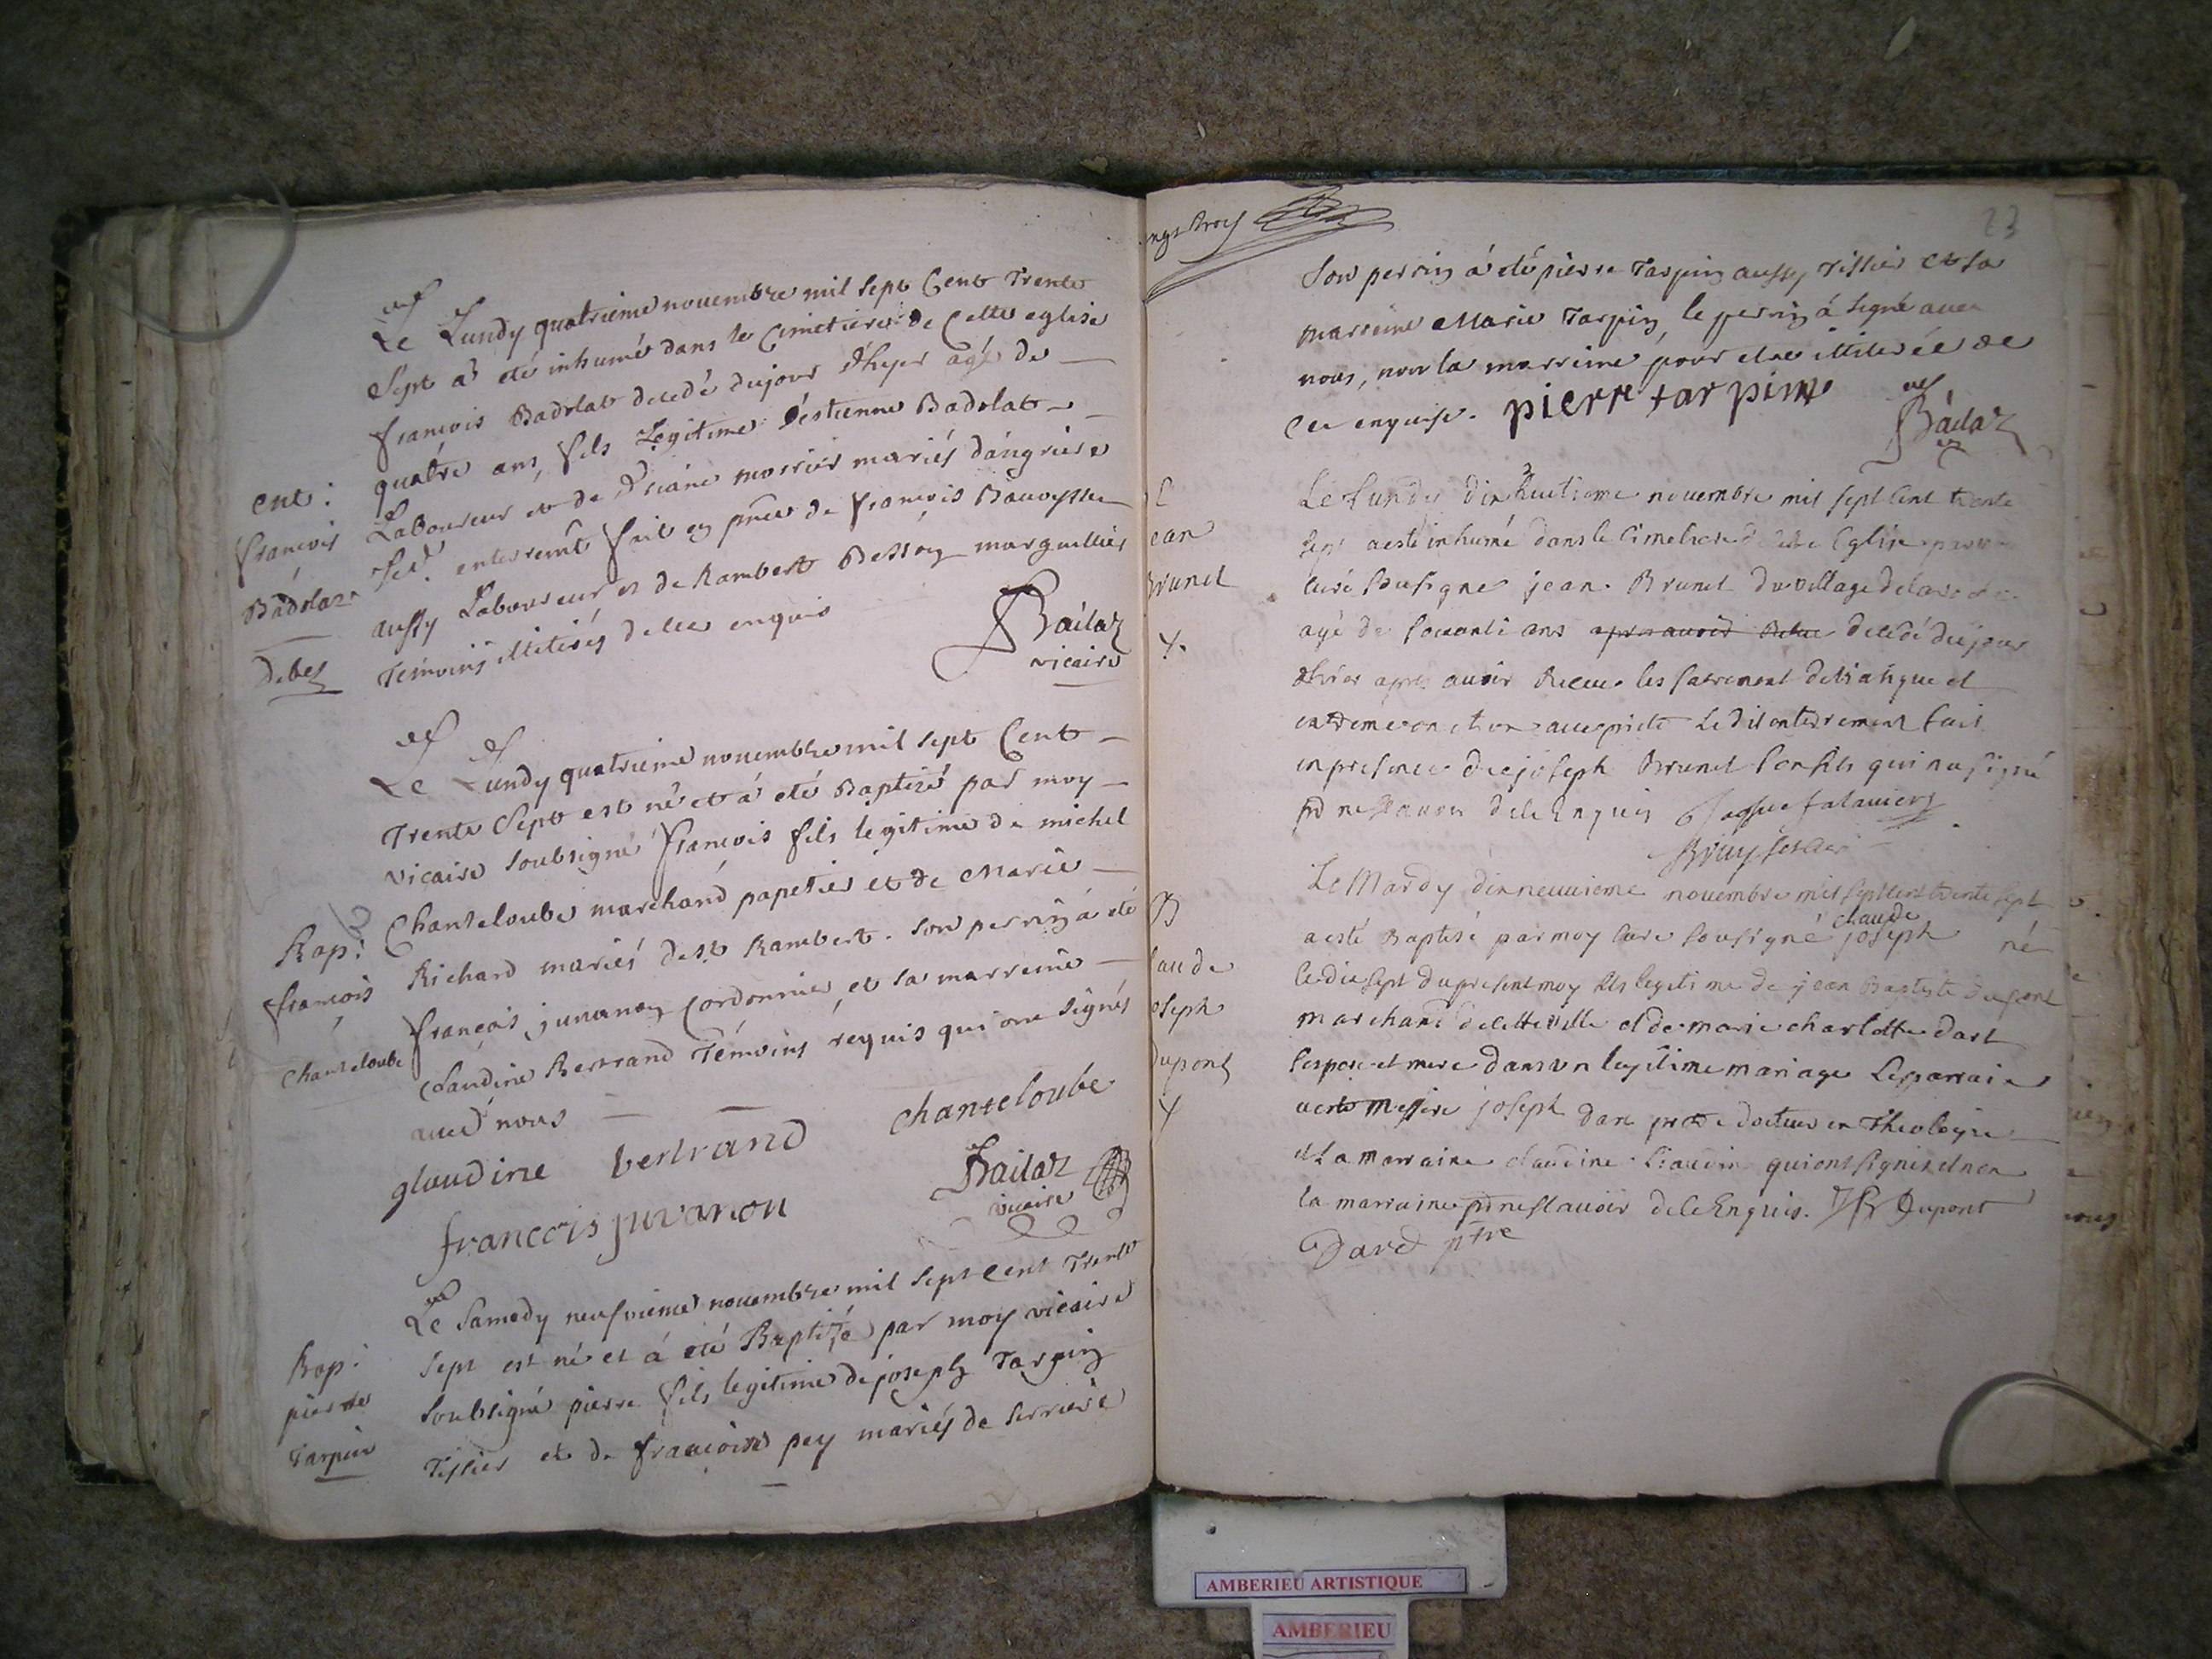 Le Lundy quatrieme nouembre mil sept Cent Trente
Sept a été inhumé dans le Cimetiere de Cette eglise
françois Badolat decedé du jour d'hyer agé de
quatre ans, fils Legitime d'estienne Badolat
ent:
Laboureur et de mariés
françois
enterremt fait en pnce de françois
Badolaz
aussy Laboureur et de Rambert marguillier
Temoins illiterés de ce enquis
Bailaz
vicaire
Le Lundy quatrieme nouembre mil sept Cent
Trente Sept est né et á eté Baptizé par moy
vicaire soubsigné françois fils legitime de michel
Chanteloube marchand papetier et de Marie
Bap:
Richard mariés de st Rambert. son perrin á eté
françois
françois juuanon Cordonnier, et sa marreine
Chanteloube
Claudine Bertrand Témoins requis qui ont signés
auec nous
chanteloube
glaudine bertrand
Bailaz
vicaire
francois juvanon
Le Samedy neufuieme nouembre mil sept Cent Trente
Bap:
sept est né et á eté Baptizé par moy vicaire
pierre
soubsigné pierre fils legitime de joseph Tarpin
Tarpin
Tissier et de françoise pey mariés de serriere
23
son perrin á eté pierre Tarpin aussy Tissier et sa
marreine Marie Tarpin, le perrin á signé auec
nous, non la marreine pour etre illiterée de
ce enquise. pierre tarpin
Bailaz
Le Lundy dix huitieme nouembre mil sept Cent trente
sept a esté inhumé dans le Cimetiere de cette Eglise par
ean
curé Sousigné jean Brunet du village de
Brunet
agé de soixante ans apres auoir decedé du jour
dhier apres auoir Receue les sacrement de
Le dit enterrement fait
en presence de joseph Brunet son fils qui na signé
de ce Enquis
Le Mardy dixneuuieme nouembre mil sept cent trente sept
B
a esté Baptisé par moy Curé sousigné claude joseph né
laude
le dix sept du present moy fils legitime de jean Baptiste Dupont
oseph
marchand de cette ville et de marie charlotte dart
Dupont
ses pere et mere dans un legitime mariage Le parrain
a esté Messire joseph dart docteur en Theologie
et La marraine claudine qui ont signés et non
la marraine pr ne sçauoir de ce Enquis. Dupont
Dard ptre
AMBERIEU ARTISTIQUE
AMBERIEU